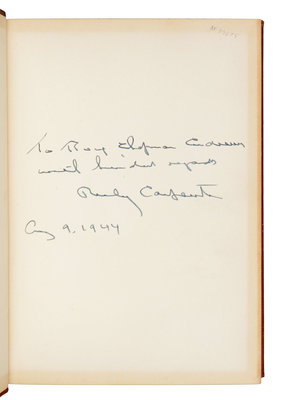 To Roy Chapman Andrews
with kindest regards
Carpenter
Aug 9, 1944